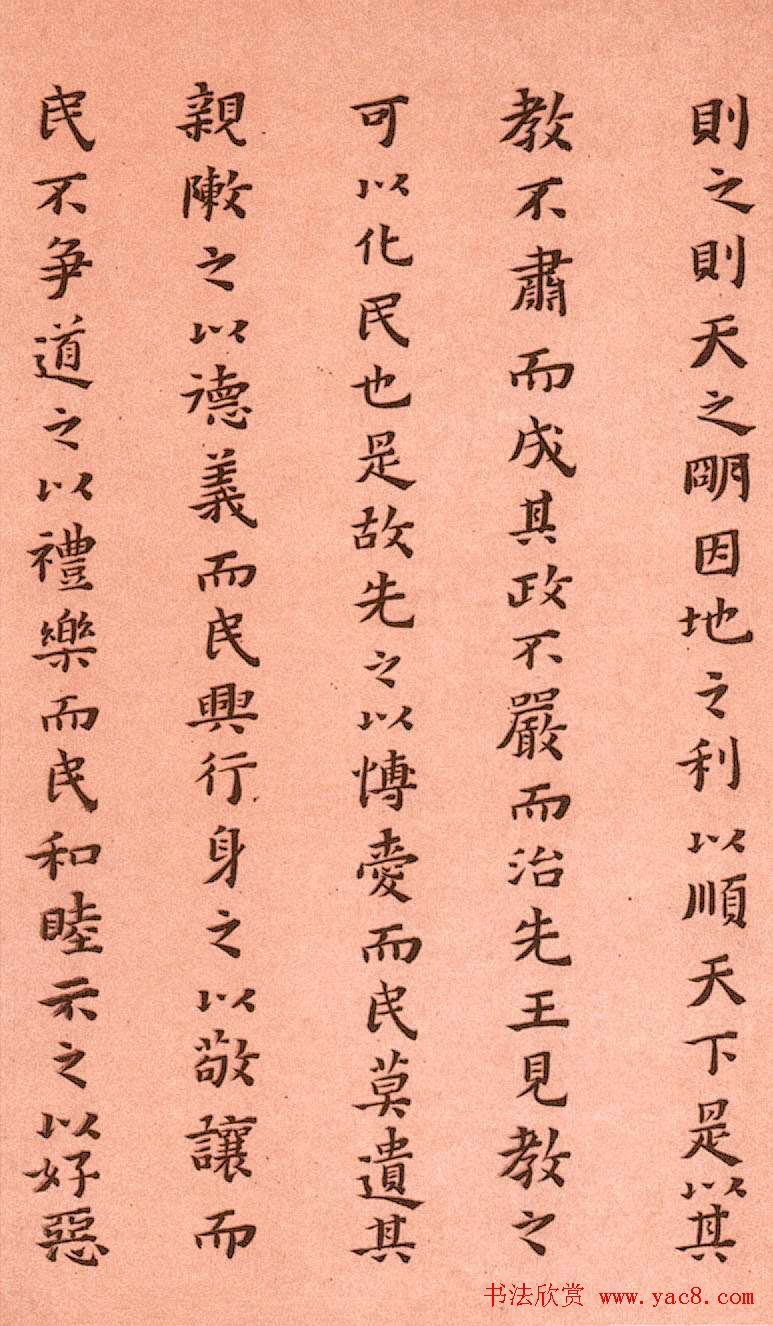 則之則天之明因地之利以順天下是以其
教不肅而成其政不嚴而治先王見教之
可以化民也是故先之以博愛而民莫遺其
親陳之以德義而民興行身之以敬讓而
民不爭道之以禮樂而民和睦示之以好惡
书法欣赏 www.yac8.com